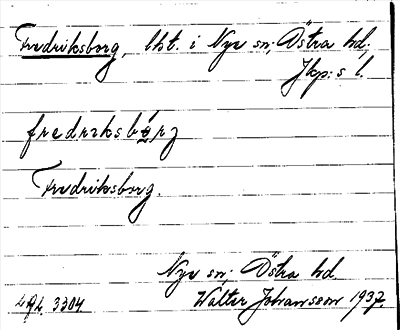 Fredriksborg, lht. i Nye sn; Östra hd;
Jkp: s l.
fredrɩksbórj
Fredriksborg.
Nye sn; Östra hd.
Walter Johansson 1937.
3304